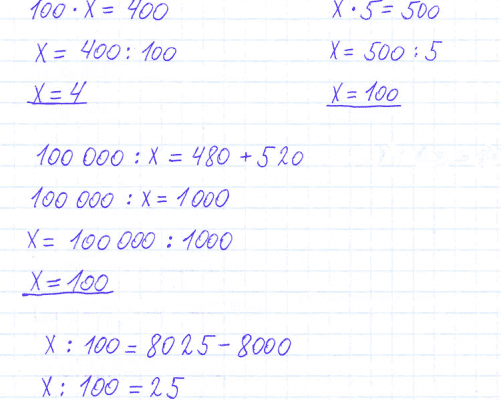 100 · x = 400
x = 400 : 100
x = 4
x · 5 = 500
x = 500 : 5
x = 100
100 000 : x = 480 + 520
100 000 : x = 1000
x = 100 000 : 1000
x = 100
x : 100 = 8025 - 8000
x : 100 = 25